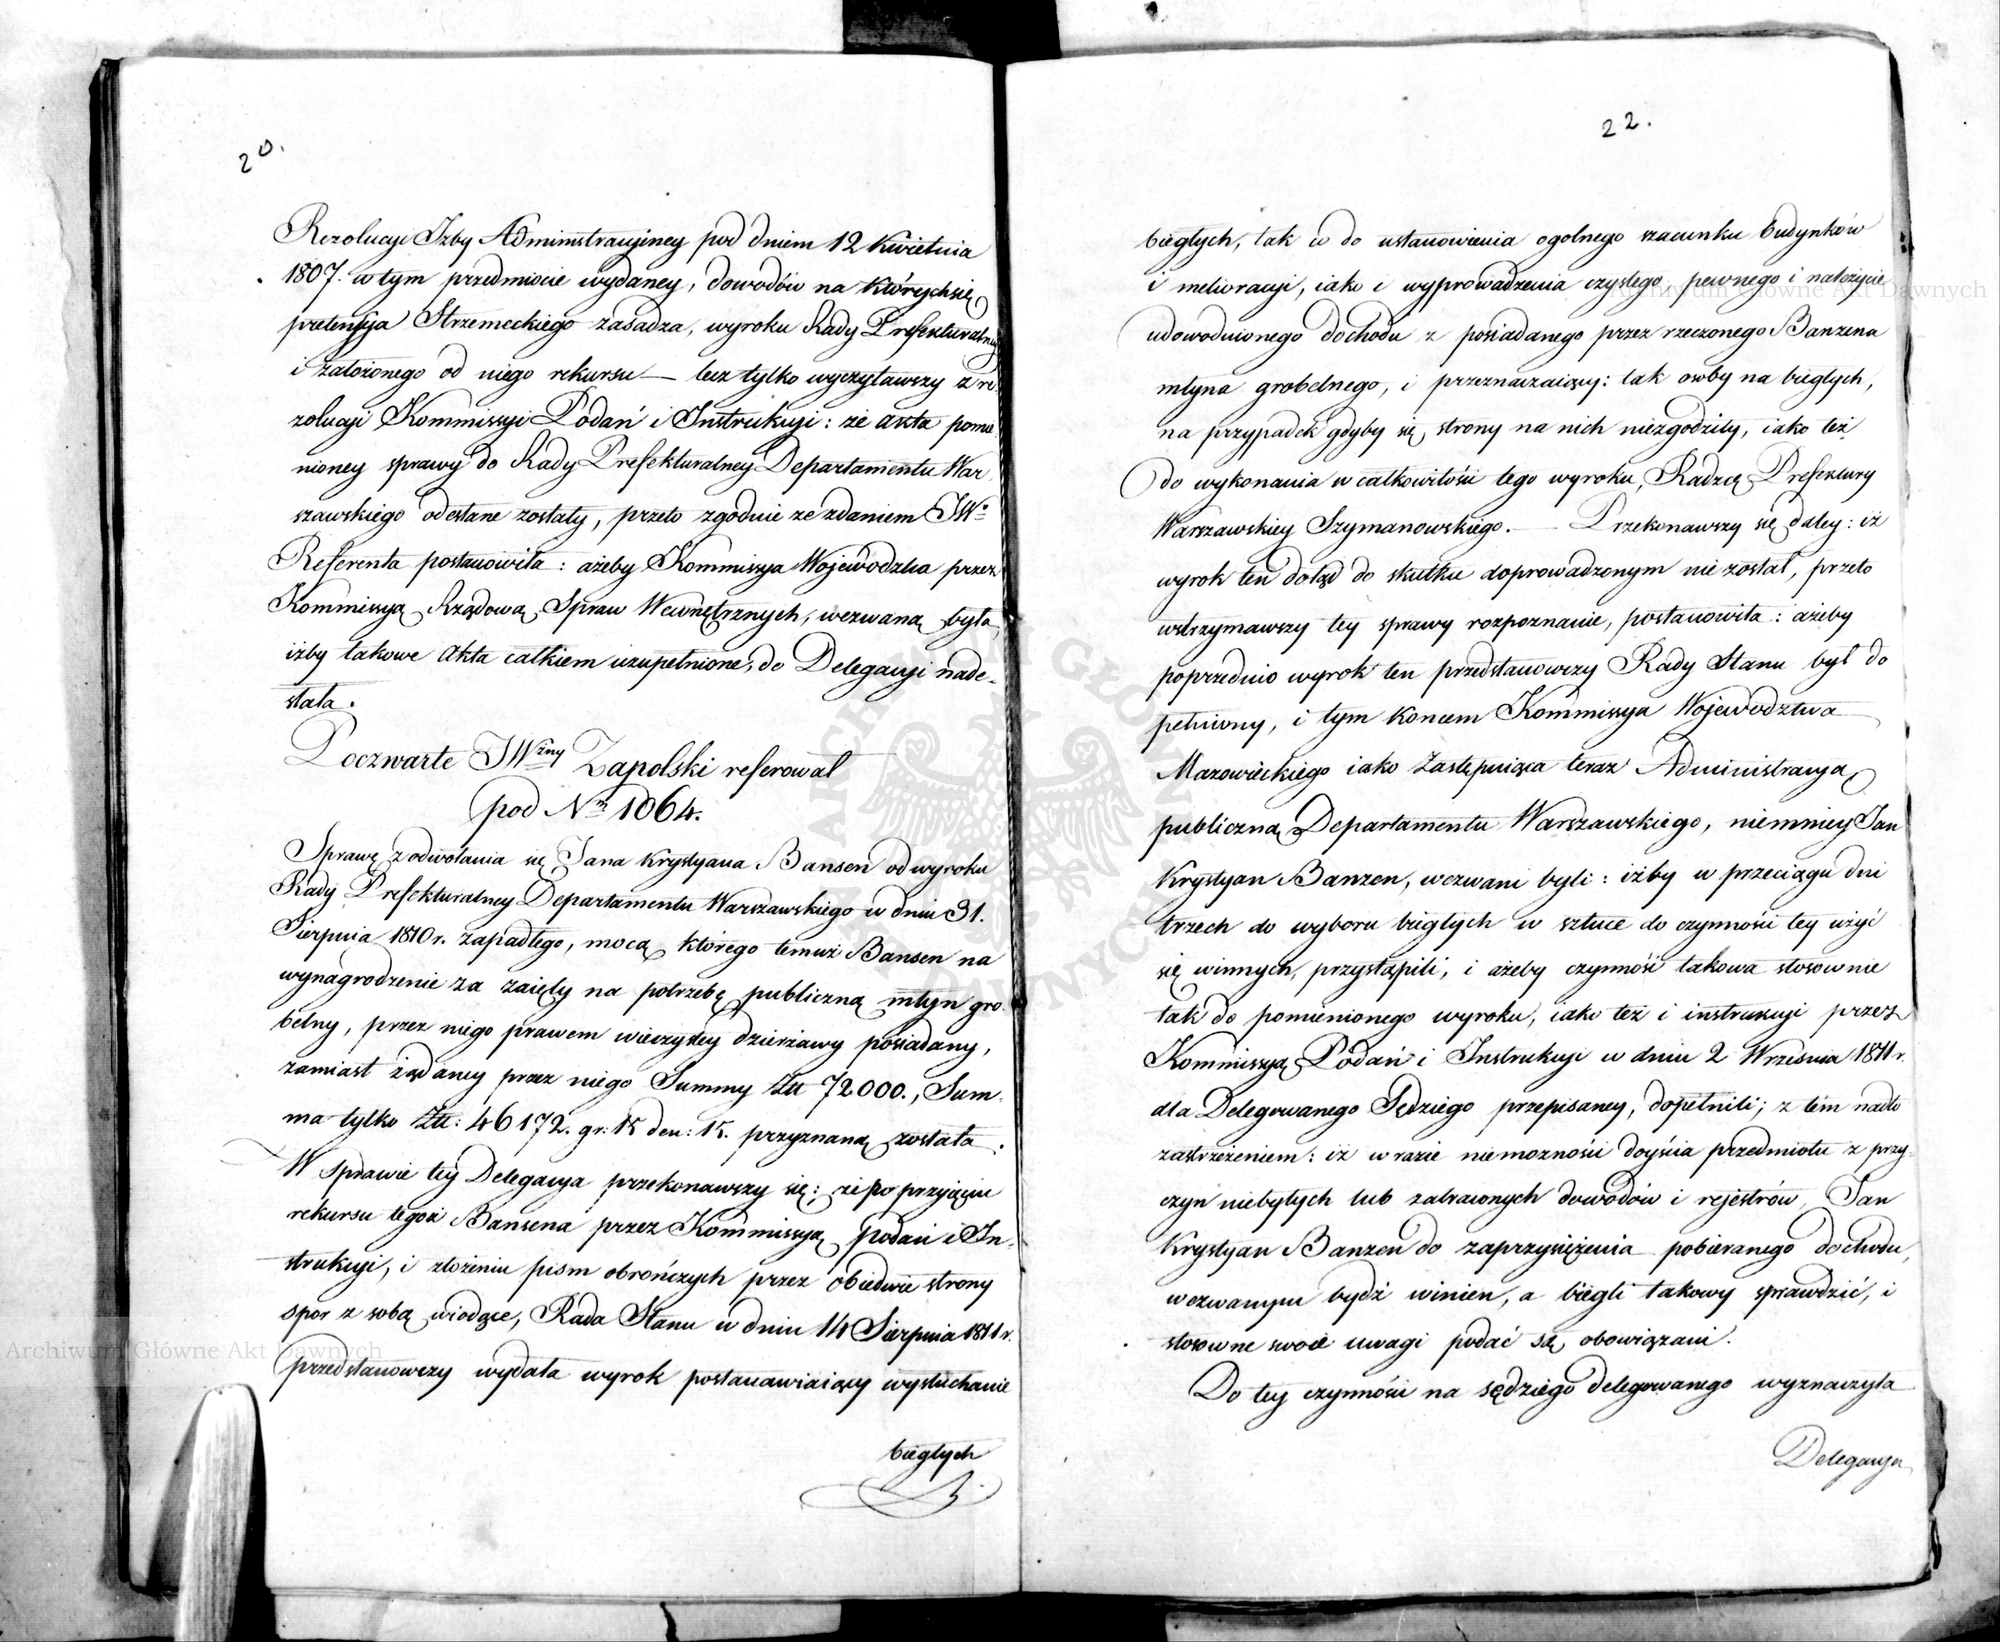 20.
Rezolucyi Izby Administracyiney pod dniem 12 Kwietnia
1807. w tym przedmiocie wydaney, dowodów na których się
pretensyia Strzemeckiego zasadza, wyroku Rady Prefekturalney
i założonego od niego rekursu — lecz tylko wyczytawszy z re
zolucyi Kommissyi Podań i Instrukcyi: że akta pomie
nioney sprawy do Rady Prefekturalney Departamentu War
szawskiego odesłane zostały, przeto zgodnie ze zdaniem JWo
Referenta postanowiła: ażeby Kommissya Woiewodzka przez
Kommissyą Rządową Spraw Wewnętrznych, wezwaną była,
iżby takowe Akta całkiem uzupełnione, do Delegacyi nade-
słała.
Poczwarte JWżny Zapolski referował
pod No 1064.
Sprawę z odwołania się Jana Krystyana Bansen od wyroku
Rady Prefekturalney Departamentu Warszawskiego w dniu 31.
Sierpnia 1810 r. zapadłego, mocą którego temuż Bansen na
wynagrodzenie za zaięty na potrzebę publiczną młyn gro
belny, przez niego prawem wieczystey dzierżawy posiadany,
zamiast żądaney przez niego Summy Złt 72000., Sum
ma tylko Złt: 46172. gr: 15 den: 15. przyznaną została.
W sprawie tey Delegacya przekonawszy się; że po przyięciu
rekursu tegoż Bansena przez Kommissyą podań i In-
strukcyi, i złożeniu pism obrończych przez obiedwie strony
spor z sobą wiodące, Rada Stanu w dniu 14 Sierpnia 1811 r.
przedstanowczy wydała wyrok postanawiaiący wysłuchanie
biegłych
22.
biegłych, tak co do ustanowienia ogolnego szacunku budynków
i melioracyi, iako i wyprowadzenia czystego pewnego i należycie
udowodnionego dochodu z posiadanego przez rzeczonego Banzena
młyna grobelnego, i przeznaczaiący: tak osoby na biegłych,
na przypadek gdyby się strony na nich niezgodziły, iako też
do wykonania w całkowitości tego wyroku, Radzcę Prefektury
Warszawskiey Szymanowskiego. — Przekonawszy się daley: iż
wyrok ten dotąd do skutku doprowadzonym nie został, przeto
wstrzymawszy tey sprawy rozpoznanie, postanowiła: ażeby
poprzednio wyrok ten przedstanowczy Rady Stanu był do
pełniony, i tym koncem Kommissya Woiewodztwa
Mazowieckiego iako zastępuiąca teraz Administracyą
publiczną Departamentu Warszawskiego, niemniey Jan
Krystyan Banzen, wezwani byli: iżby w przeciągu dni
trzech do wyboru biegłych w sztuce do czynności tey użyć
się winnych, przystąpili, i ażeby czynność takowa stosownie
tak do pomienionego wyroku, iako też i instrukcyi przez
Kommissyą Podań i Instrukcyi w dniu 2 Września 1811 r.
dla Delegowanego Sędziego przepisaney, dopełnili; z tém nadto
zastrzeżeniem: iż w razie niemozności doyścia przedmiotu z przy-
czyn niebyłych lub zatraconych dowodów i rejestrów, Jan
Krystyan Banzen do zaprzysiężenia pobieranego dochodu,
wezwanym bydź winien, a biegli takowy sprawdzić, i
stosowne swoie uwagi podać są obowiązani.
Do tey czynności na sędziego delegowanego wyznaczyła
Delegacya
Archiwum Główne Akt Dawnych
Archiwum Główne Akt Dawnych